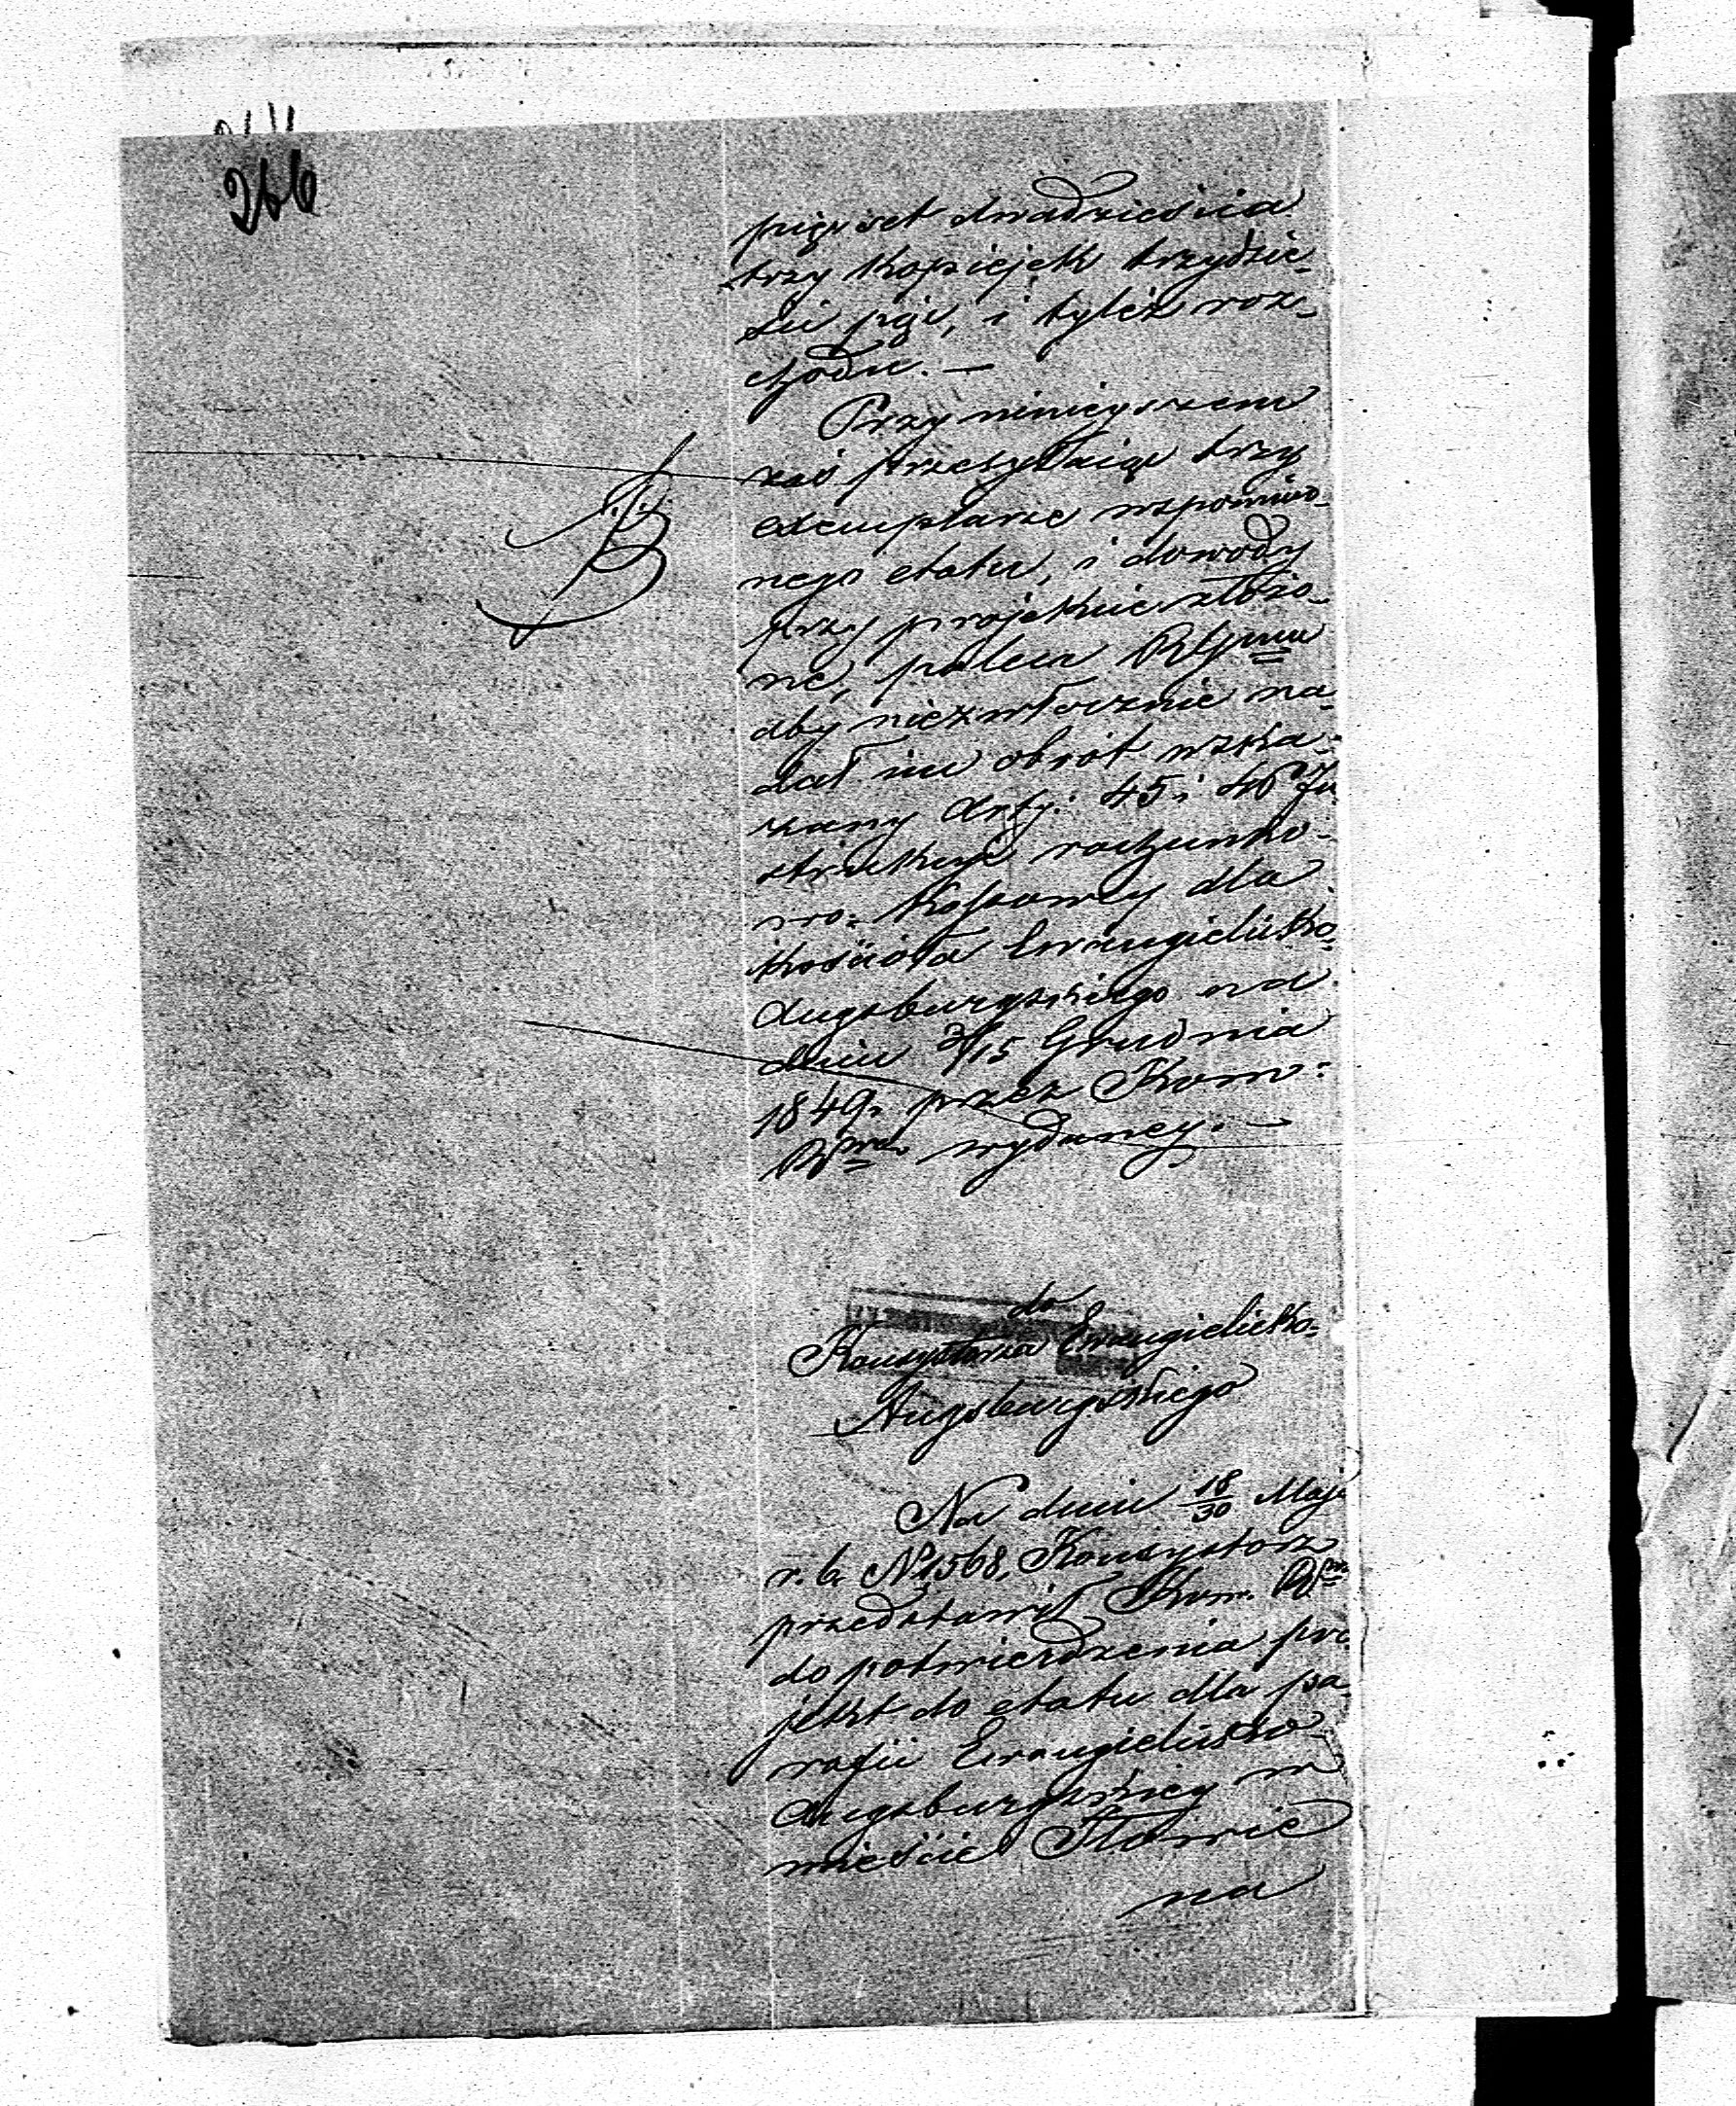 266
pięćset dwadzieścia
trzy kopiejek trzydzie-
ści pięć, i tyleż roz-
chodu. —
Przy niniejszem
zaś przesyłając trzy
exemplarze wspomnio-
nego etatu, i dowody
przy projekcie złożo-
ne, poleca
aby niezwłocznie na-
dał im obrót wska-
zany Arty: 45 i 46 In-
strukcyi rachunko-
wo-Kassowéy dla
Kościoła Ewangielicko-
Augsburgskiego na
dniu 3/15 Grudnia
1849 r. przez Kom:
Rz. wydanéy. —
do
Konsystorza Ewangielicko-
Augsburgskiego
Na dniu 18/30 Maja
r. b. N 1568, Konsystorz
przedstawił Kom. Rz.
do potwierdzenia pro-
jekt do etatu dla pa-
rafii Ewangielicko-
Augsburgskiéy w
mieście Stawie
na